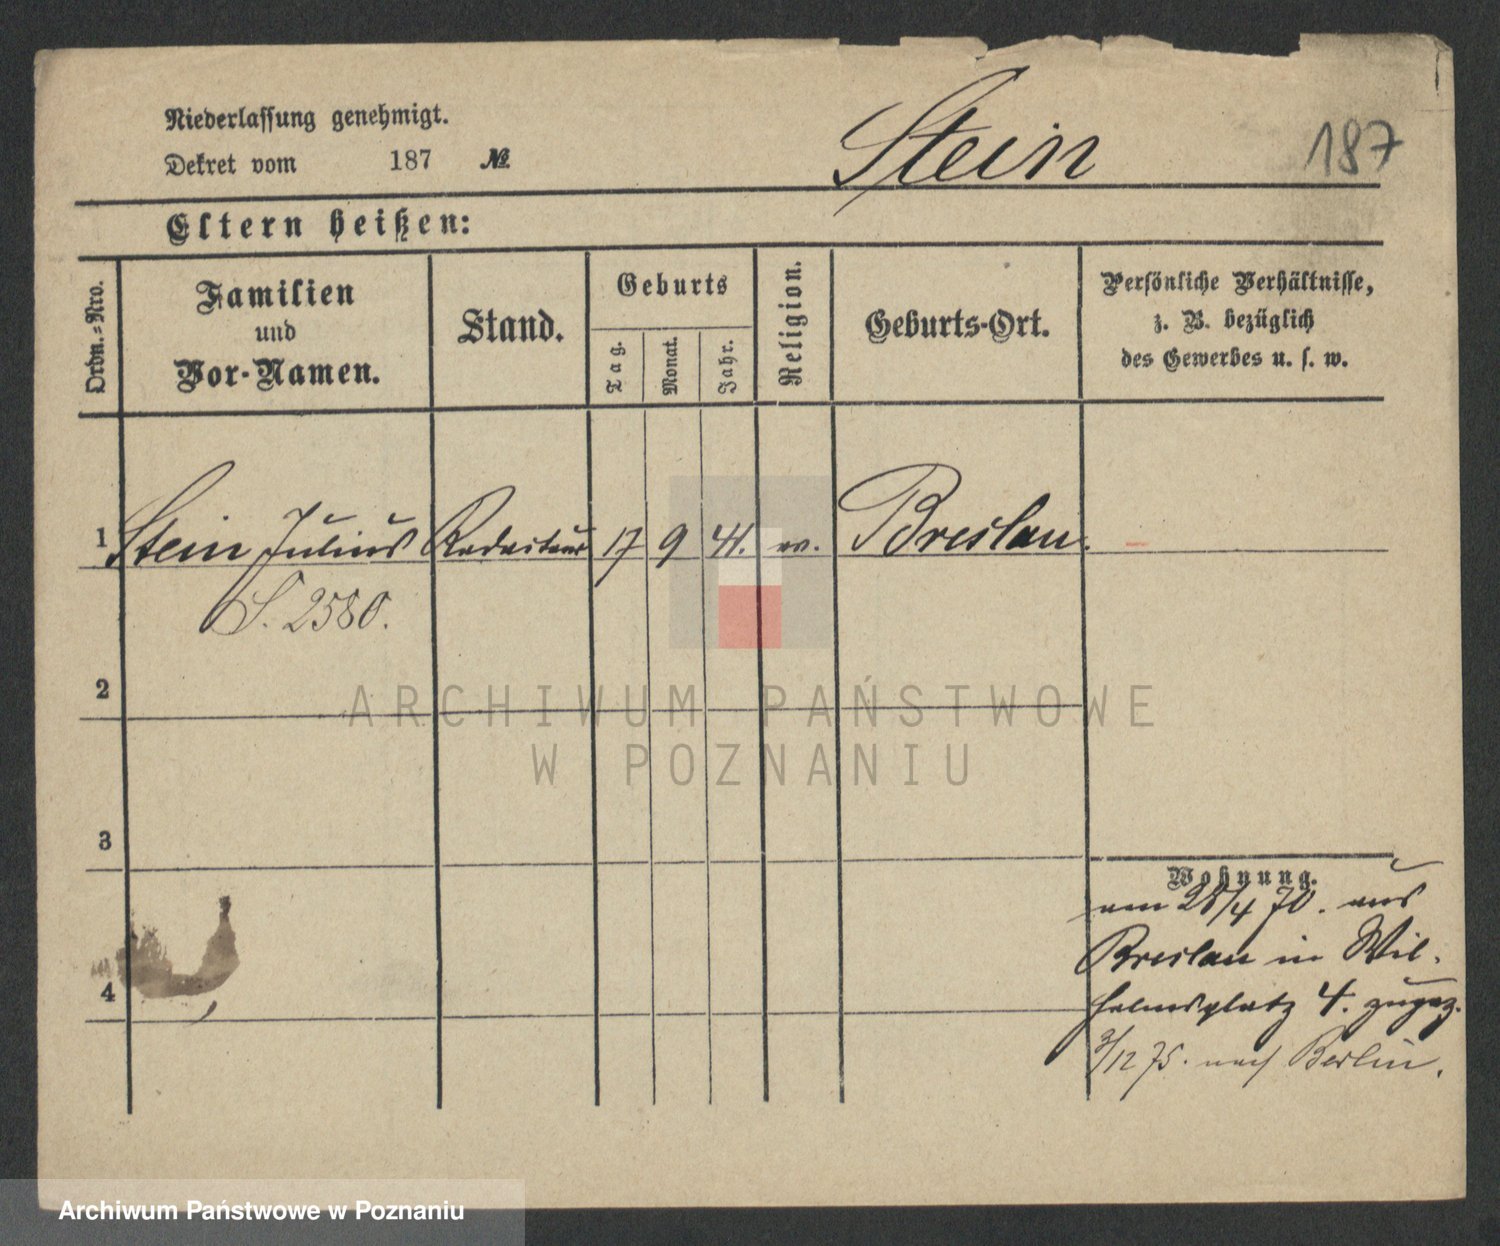 Niederlassung genehmigt.
Dekret vom 187 №
Stein
187
Eltern heißen:
Ordn.=Nro.
Familien
und
Vor-Namen.
Stand.
Geburts
Tag.
Monat.
Jahr.
Religion.
Geburts-Ort.
Persönliche Verhältnisse,
z. B. bezüglich
des Gewerbes u. s. w.
1 Stein Julius Redacteur 17 9 41. ev. Breslau. –
S. 2580.
2
ARCHIWUM PAŃSTWOWE
W POZNANIU
3
Wohnung.
am 28/4 70. aus
Breslau in Wil-
helmsplatz 4. zugez.
4
3/12 75. nach Berlin.
Archiwum Państwowe w Poznaniu